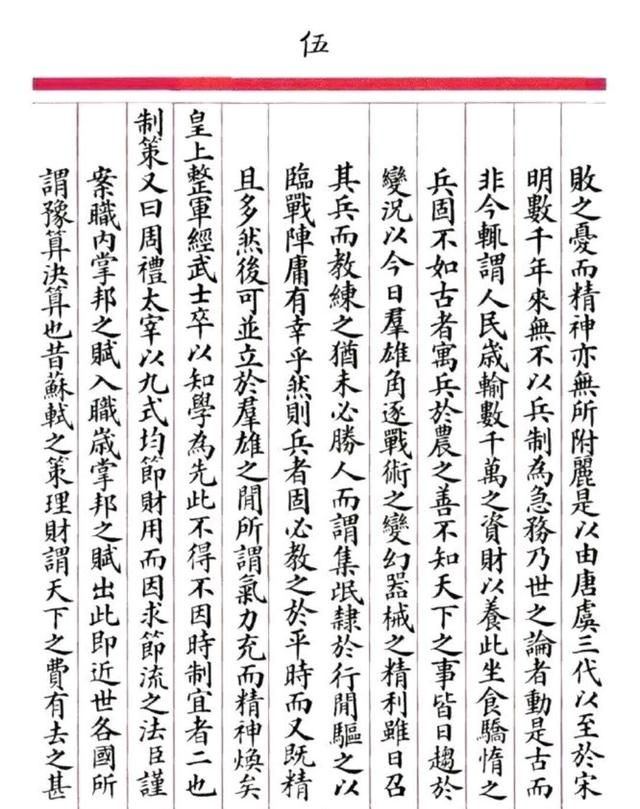 伍
敗之憂而精神亦無所附麗是以由唐虞三代以至於宋
明數千年來無不以兵制為急務乃世之論者動是古而
非今輒謂人民歲輸數千萬之資財以養此坐食驕惰之
兵固不如古者寓兵於農之善不知天下之事皆日趨於
變況以今日羣雄角逐戰術之變幻器械之精利雖日召
其兵而教練之猶未必勝人而謂集氓隸於行閒驅之以
臨戰陣庸有幸乎然則兵者固必教之於平時而又既精
且多然後可並立於羣雄之閒所謂氣力充而精神煥矣
皇上整軍經武士卒以知學為先此不得不因時制宜者二也
制策又曰周禮太宰以九式均節財用而因求節流之法臣謹
案職內掌邦之賦入職歲掌邦之賦出此即近世各國所
謂豫算決算也昔蘇軾之策理財謂天下之費有去之甚